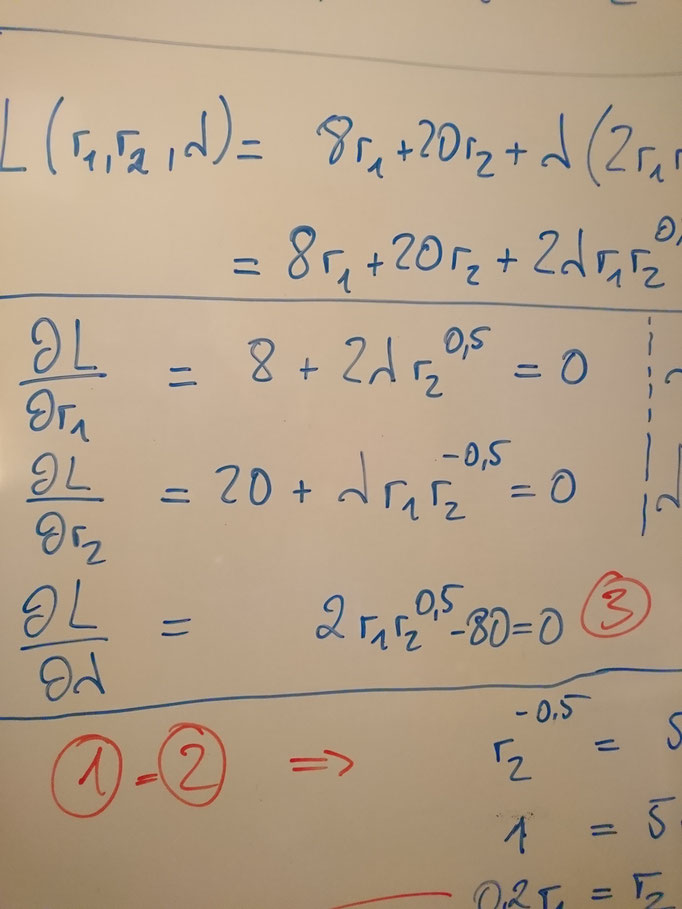 L(r₁,r₂,λ) = 8r₁+20r₂+λ(2r₁
= 8r₁+20r₂+2λr₁r₂^0,
∂L/∂r₁ = 8 + 2λr₂^0,5 = 0
∂L/∂r₂ = 20 + λr₁r₂^-0,5 = 0
∂L/∂λ = 2r₁r₂^0,5-80=0 ③
①=② ⇒ r₂^-0,5 = 5
1 = 5
0,2r₁ = r₂